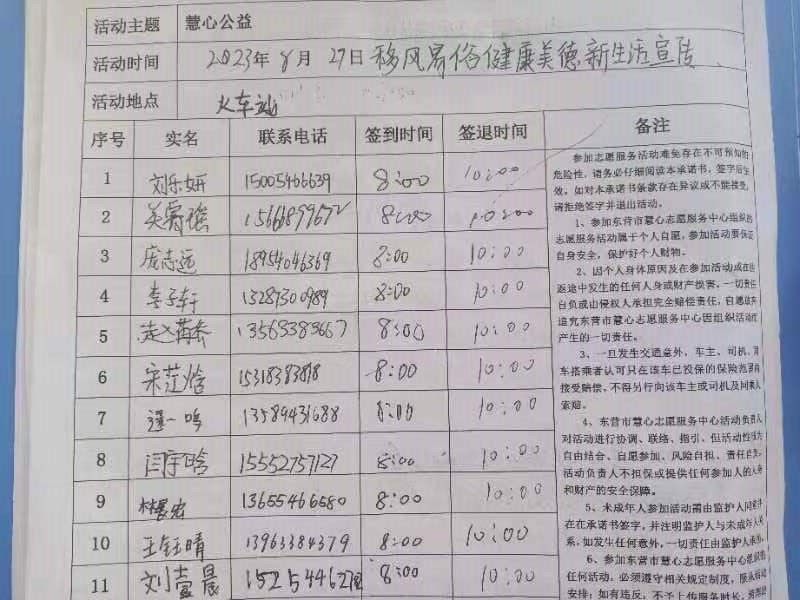 活动主题 慧心公益
活动时间 2023年8月27日移风易俗健康美德新生活宣传
活动地点 火车站
序号 实名 联系电话 签到时间 签退时间 备注
1 刘乐妍 15005466639 8:00 10:00
2 15666899672 8:00 10:00
3 庞志远 18954046369 8:00 10:00
4 李子轩 13287300989 8:00 10:00
5 13563383667 8:00 10:00
6 宋芷焓 15318383818 8:00 10:00
7 一鸣 13589431688 8:00 10:00
8 闫宇晗 15552757127 8:00 10:00
9 13655466580 8:00 10:00
10 王钰晴 13963384379 8:00 10:00
11 刘壹晨 152544627 8:00 10:00
参加志愿服务活动难免存在不可预知的
危险性,请务必仔细阅读本承诺书,签字后生
效,如对本承诺书条款存在异议或不能接受,
请拒绝签字并退出活动。
1、参加东营市慧心志愿服务中心组织的
志愿服务活动属于个人自愿,参加活动要保证
自身安全,保护好个人财物。
2、因个人身体原因及在参加活动或在往
返途中发生的任何人身或财产损害,一切责任
自负或由侵权人承担完全赔偿责任,自愿放弃
追究东营市慧心志愿服务中心因组织活动而
产生的一切责任。
3、一旦发生交通意外,车主、司机、
车搭乘者认可只在该车已投保的保险范围内
接受赔偿,不得另行向该车主或司机及同乘人
索赔。
4、东营市慧心志愿服务中心活动负责人
对活动进行协调、联络、指引,但活动性质为
自由结合、自愿参加、风险自担、责任自负,
活动负责人不担保或提供任何参加人的人身
和财产的安全保障。
5、未成年人参加活动需由监护人同意并
在在承诺书签字,并注明监护人与未成年人关
系,如发生任何意外,一切责任由监护人承担。
6、参加东营市慧心志愿服务中心组织的
任何活动,必须遵守相关规定制度,服从活动
安排;如有违反,不予上传服务时长,